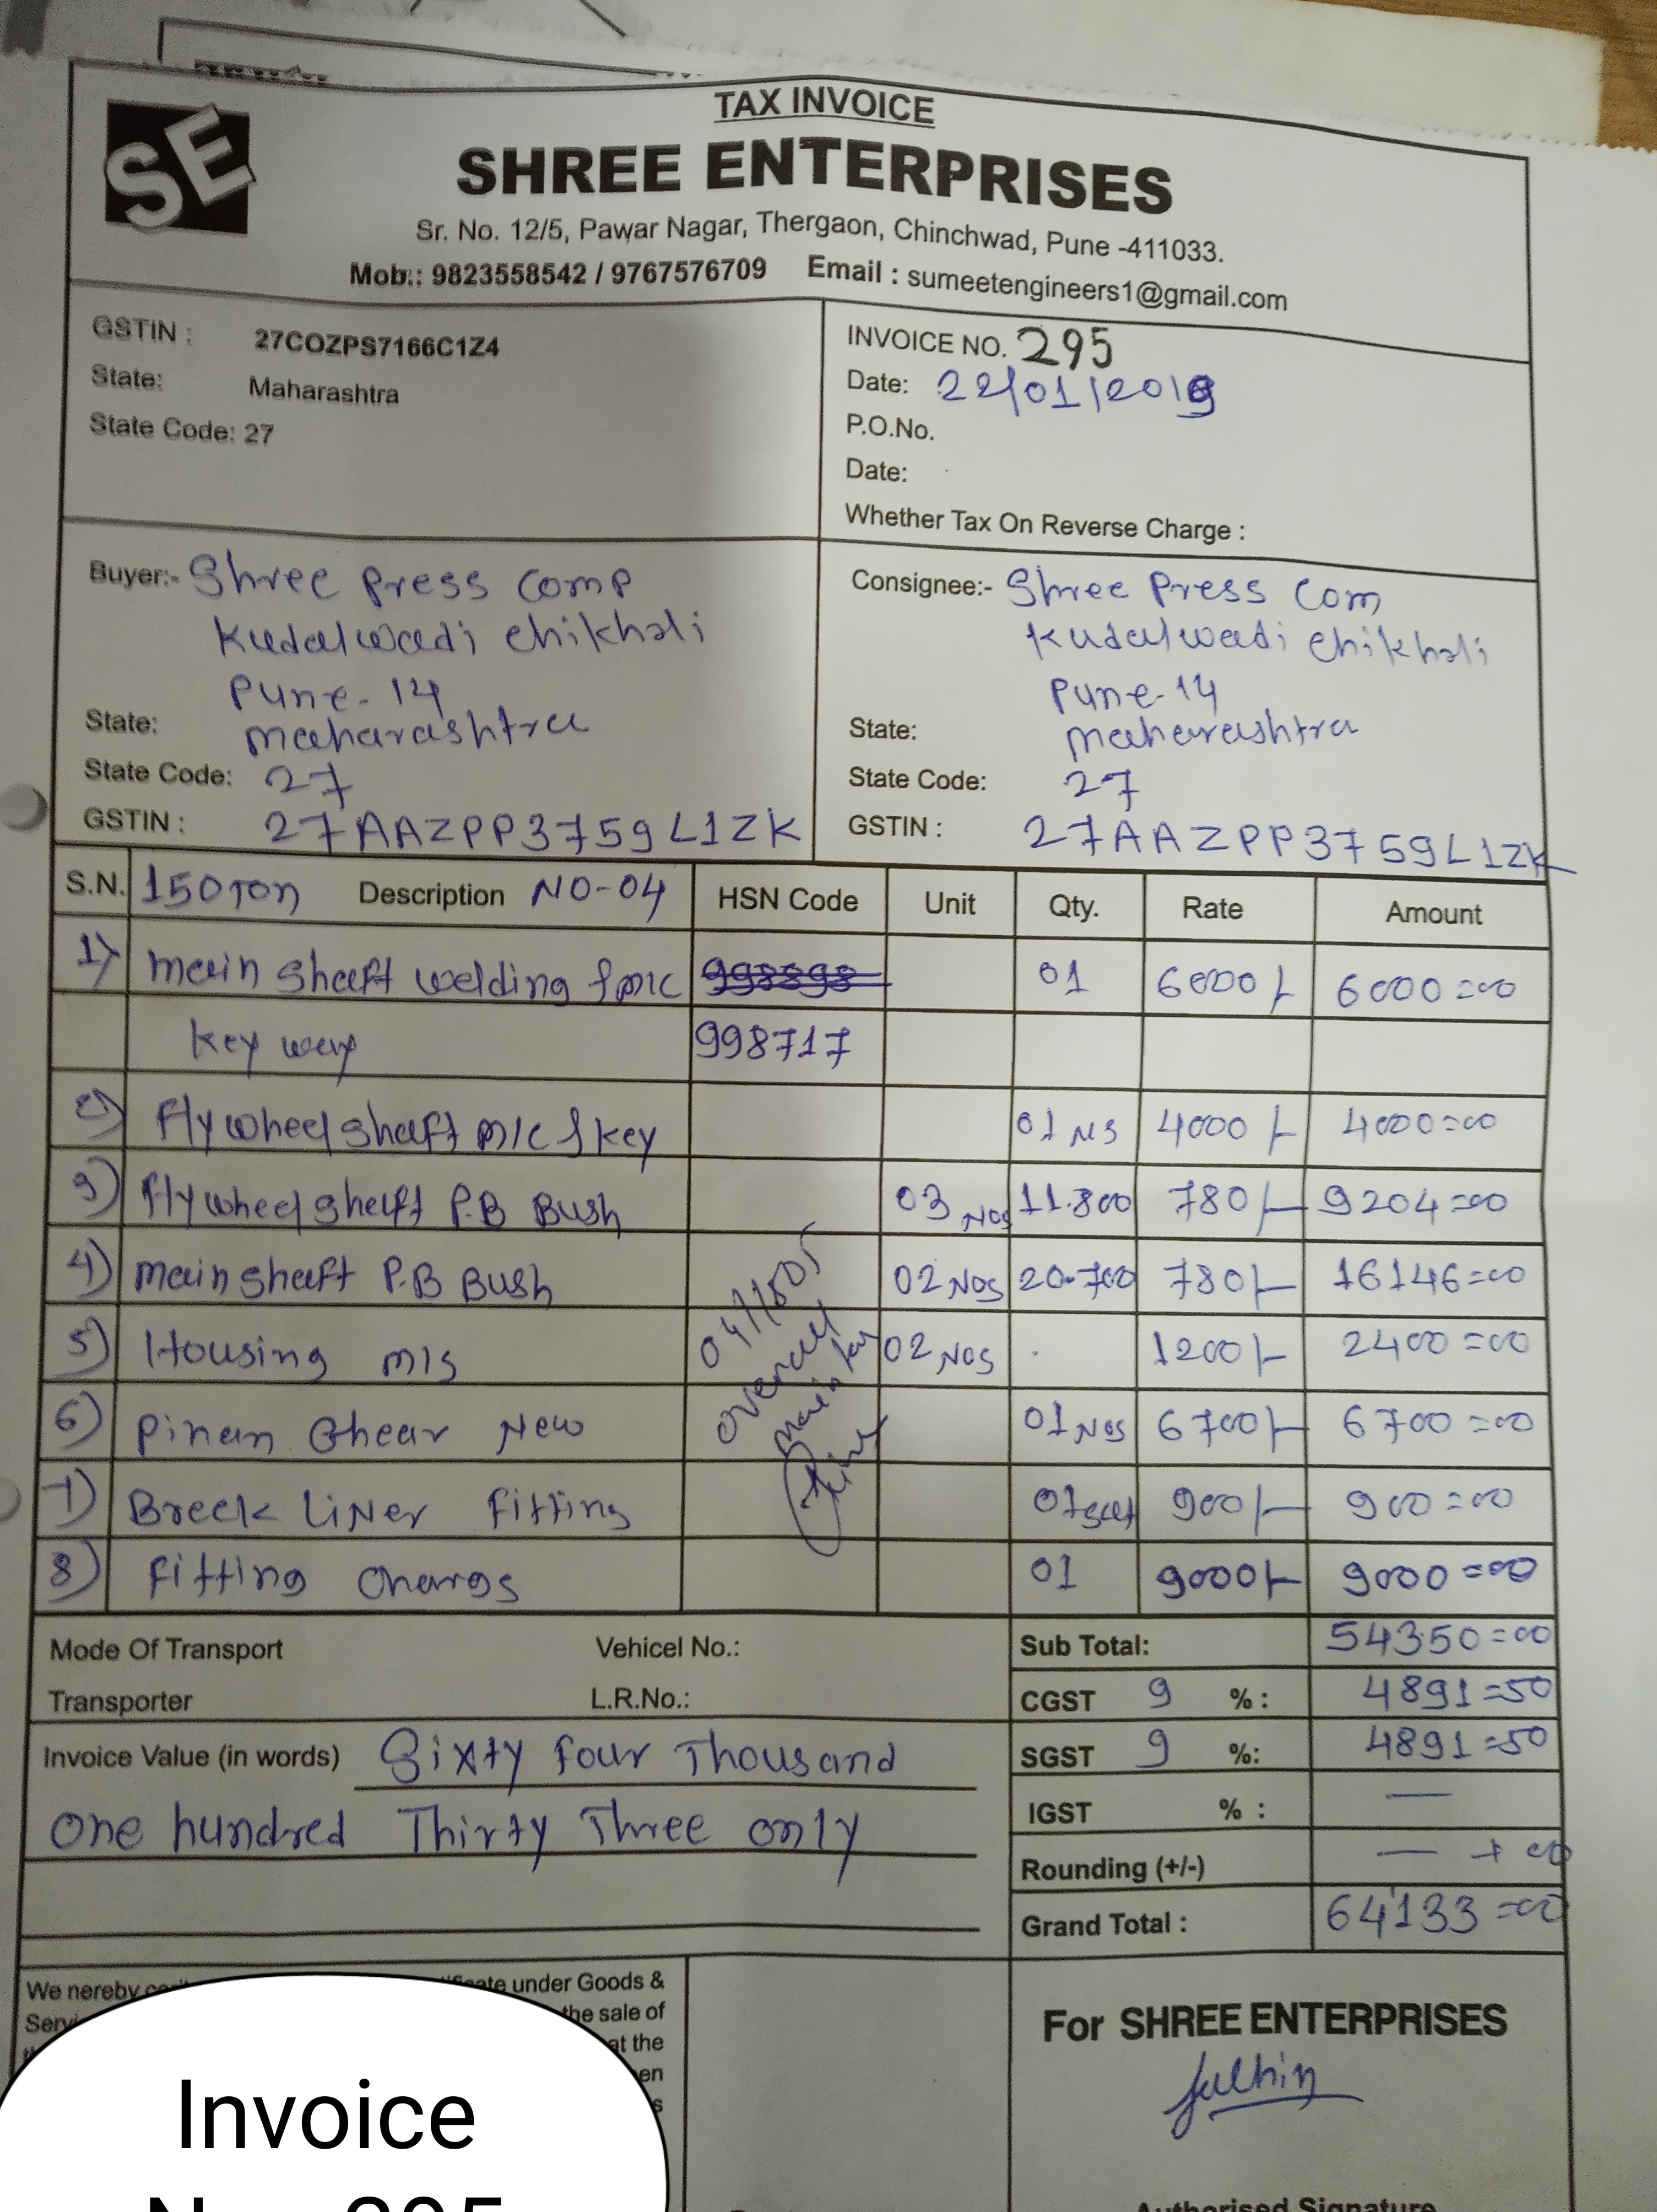 TAX INVOICE
SE
SHREE ENTERPRISES
Sr. No. 12/5, Pawar Nagar, Thergaon, Chinchwad, Pune -411033.
Mob.: 9823558542 / 9767576709 Email : sumeetengineers1@gmail.com
GSTIN : 27COZPS7166C1Z4
State: Maharashtra
State Code: 27
INVOICE NO. 295
Date: 22/01/2019
P.O.No.
Date:
Whether Tax On Reverse Charge :
Buyer:- Shree Press Comp
Kudalwadi Chikhali
Pune-14
State: maharashtra
State Code: 27
GSTIN : 27AAZPP3759L1ZK
Consignee:- Shree Press Com
Kudalwadi Chikhali
Pune-14
State: maharashtra
State Code: 27
GSTIN : 27AAZPP3759L1ZK
S.N. 150 Ton Description NO-04 HSN Code Unit Qty. Rate Amount
1) main shaft welding & m/c 998898 01 6000/- 6000=00
key way 998717
2) Flywheel shaft m/c & key 01 NS 4000/- 4000=00
3) Flywheel shaft P.B Bush 03 Nos 11.800 780/- 9204=00
4) main shaft P.B Bush 02 Nos 20.700 780/- 16146=00
5) Housing m/s 02 Nos 1200/- 2400=00
6) Pinan Ghear New 01 Nos 6700/- 6700=00
7) Breek Liner Fitting 01 set 900/- 900=00
8) Fitting Chargs 01 9000/- 9000=00
Mode Of Transport Vehicel No.:
Transporter L.R.No.:
Sub Total: 54350=00
CGST 9 % : 4891=50
SGST 9 %: 4891=50
IGST % : —
Rounding (+/-) —
Grand Total : 64133=00
Invoice Value (in words) Sixty Four Thousand
One hundred Thirty Three only
We
under Goods &
the sale of
at the
For SHREE ENTERPRISES
Authorised Signature
Invoice
No. 295